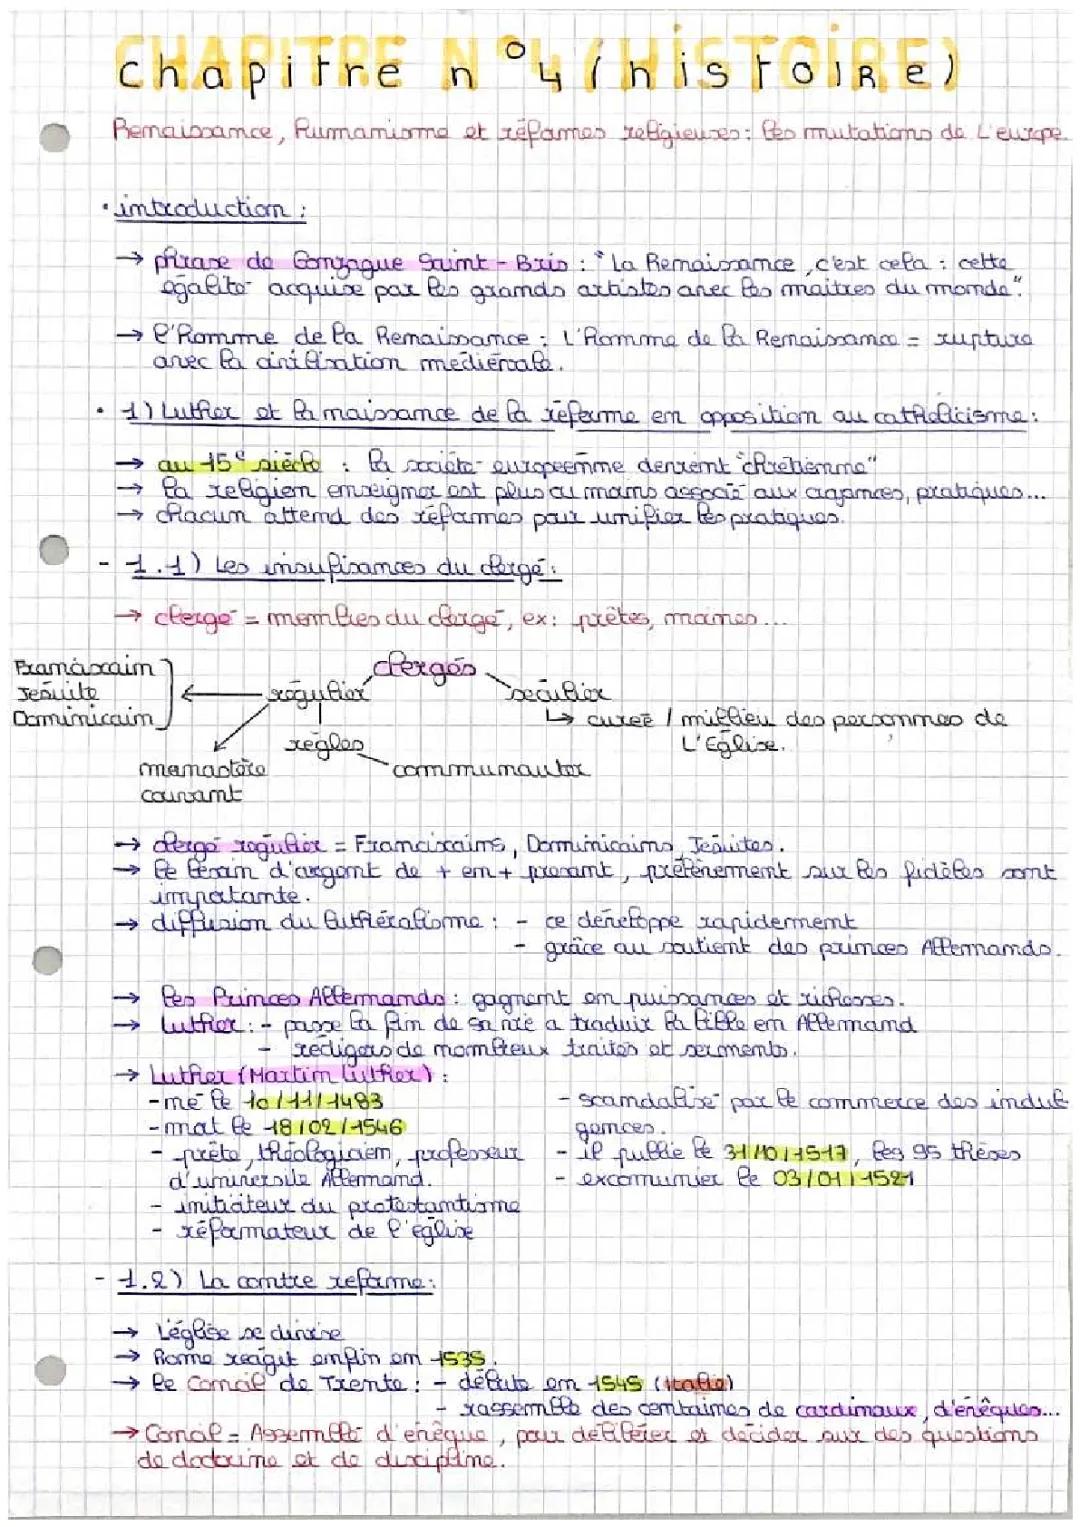 CHAPITRE N°4 (HISTOIRE)
chapitre n°4 (histoire)
Renaissance, humanisme et réformes religieuses : les mutations de L'europe.
• introduction :
→ phrase de Gonzague Saint-Bris : "La Renaissance, c'est cela : cette
égalité acquise par les grands artistes avec les maitres du monde".
→ l'homme de la Renaissance : L'homme de la Renaissance = rupture
avec la civilisation médiévale.
• 1) Luther et la naissance de la réforme en opposition au catholicisme :
→ au 15e siècle : la société européenne devient "chrétienne"
→ la religion enseigner est plus ou moins associé aux croyances, pratiques...
→ chacun attend des réformes pour unifier les pratiques.
- 1.1) Les insufisances du clergé :
→ clergé = membres du clergé, ex : prêtes, moines...
clergés
Franciscain
Jésuite
Dominicain
régulier
séculier
↳ cureé / millieu des personnes de
L'Église.
règles
monastère
communauter
couvant
→ clergé régulier = Franciscains, Dominicains, Jésuites.
→ le besoin d'argent de + en + presant, prélèvement sur les fidèles sont
importante.
→ diffusion du luthéralisme : - ce développe rapidement
- grâce au soutient des princes Allemands.
→ les Princes Allemands : gagnent en puissances et richesses.
→ Luther : - passe la fin de sa vie a traduir la bible en Allemand
- rédigers de nombreux traités et serments.
→ Luther (Martin Luther) :
- né le 10/11/1483
- mort le 18/02/1546
- prête, théologien, professeur
d'université Allemand.
- initiateur du protestantisme
- réformateur de l'église
- scandalisé par le commerce des indul
gences.
- il publie le 31/10/1517, les 95 thèses
- excomunier le 03/01/1521
- 1.2) La contre reforme :
→ L'église se divise
→ Rome réagit enfin en 1535.
→ le Concil de Trente : - débute en 1545 (Italie)
- rassemble des centaines de cardinaux, d'évêques...
→ Concil = Assemblé d'évêque, pour délibérer et décider sur des questions
de doctrine et de discipline.